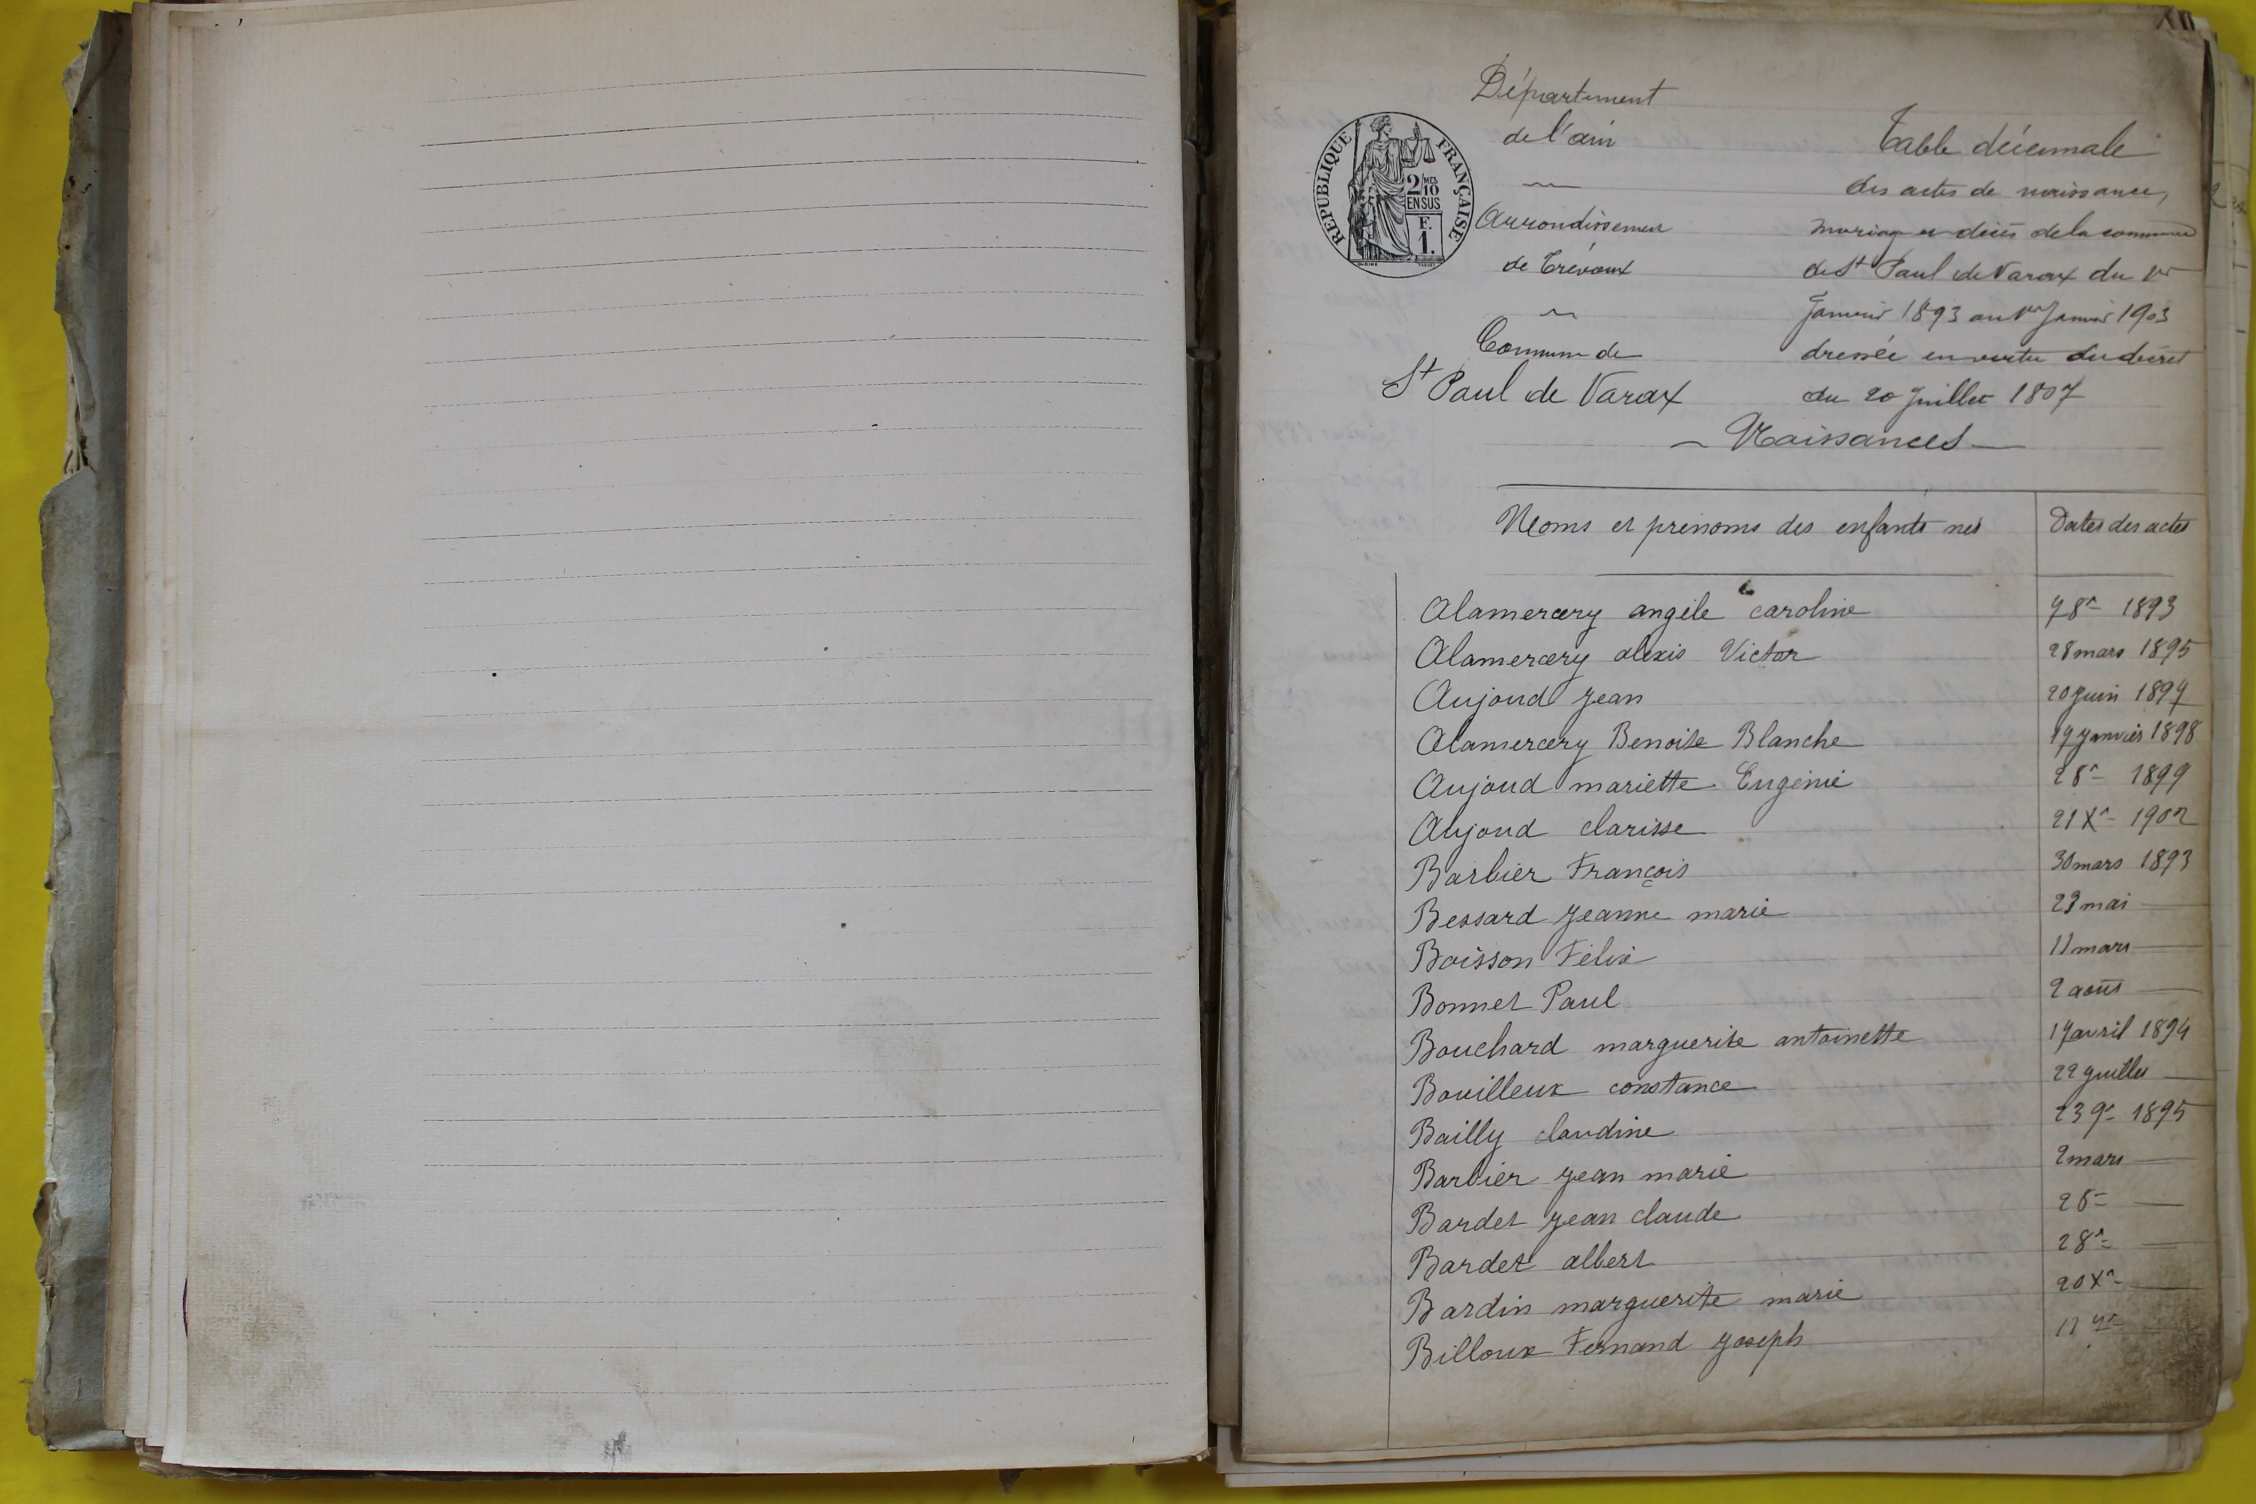 XII
Département
de l'ain
Arrondissement
de Trévoux
Commune de
St Paul de Varax
RÉPUBLIQUE FRANÇAISE
2/MES
10
EN SUS
F.
1.
Table décennale
des actes de naissance,
mariage et décès de la commune
de St Paul de Varax du 1er
Janvier 1893 au 1er Janvier 1903
dressée en vertu du décret
du 20 Juillet 1807
— Naissances —
Noms et prénoms des enfants nés Dates des actes
Alamercery angèle caroline 7 8re 1893
Alamercery alexis Victor 28 mars 1895
Aujoud Jean 20 Juin 1897
Alamercery Benoite Blanche 19 Janvier 1898
Aujoud mariette Eugénie 2 8re 1899
Aujoud clarisse 21 Xre 1902
Barbier François 30 mars 1893
Bessard Jeanne marie 23 mai —
Boisson Félix 11 mars —
Bonnet Paul 2 août —
Bouchard marguerite antoinette 17 avril 1894
Bouilleux constance 22 Juillet —
Bailly claudine 23 9re 1895
Barbier Jean marie 2 mars —
Bardet Jean claude —
Bardet albert 2 8re —
Bardin marguerite marie 20 Xre —
Billoux Fernand Joseph 11 —